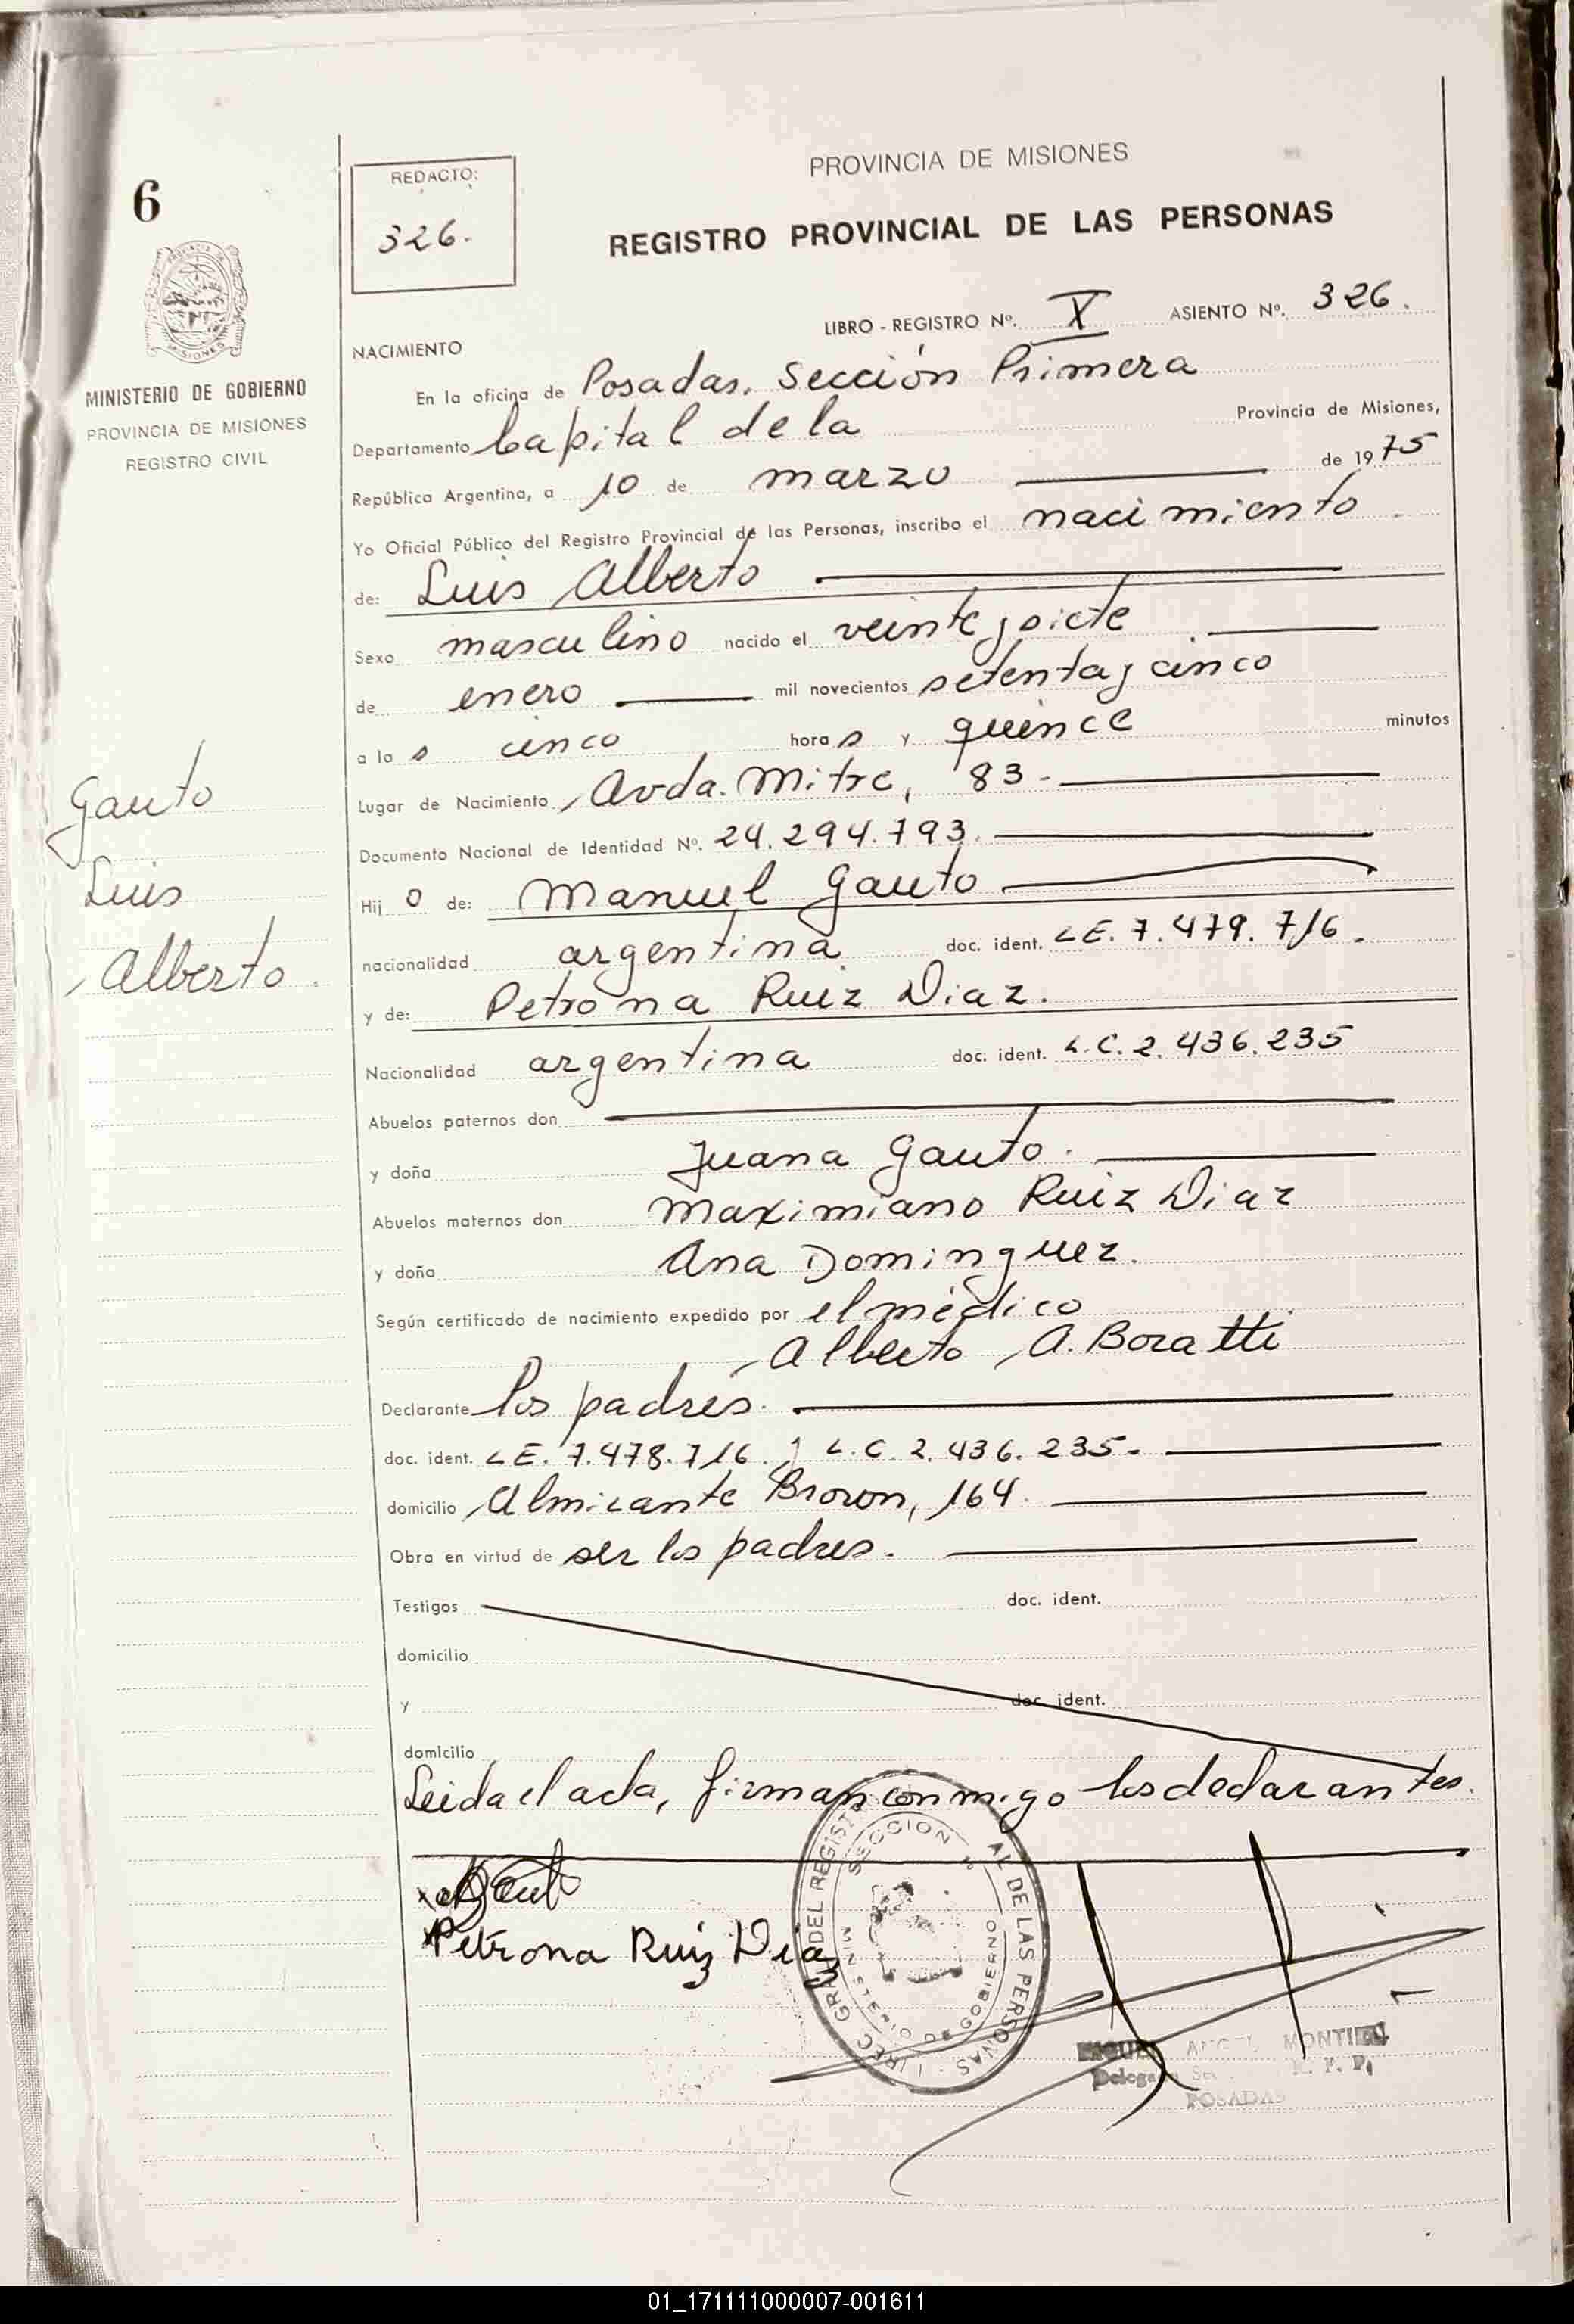 6
MINISTERIO DE GOBIERNO
PROVINCIA DE MISIONES
REGISTRO CIVIL
Gauto
Luis
Alberto.
REDACTO:
326.
PROVINCIA DE MISIONES
REGISTRO PROVINCIAL DE LAS PERSONAS
LIBRO - REGISTRO Nº. X ASIENTO Nº. 326.
NACIMIENTO
En la oficina de Posadas. Sección Primera
Departamento Capital de la Provincia de Misiones,
República Argentina, a 10 de marzo de 1975
Yo Oficial Público del Registro Provincial de las Personas, inscribo el nacimiento
de: Luis Alberto
Sexo masculino nacido el veinte y siete
de enero mil novecientos setenta y cinco
a las cinco horas y quince minutos
Lugar de Nacimiento Avda. Mitre, 83.-
Documento Nacional de Identidad Nº. 24.294.793.
Hijo de: Manuel Gauto
nacionalidad argentina doc. ident. LE. 7.479.716.
y de: Petrona Ruiz Diaz.
Nacionalidad argentina doc. ident. L.C. 2.436.235
Abuelos paternos don
y doña Juana Gauto.
Abuelos maternos don Maximiano Ruiz Diaz
y doña Ana Dominguez.
Según certificado de nacimiento expedido por el médico
Alberto A. Boratti
Declarante los padres.
doc. ident. LE. 7.478.716. y L.C. 2.436.235.
domicilio Almirante Brown, 164.
Obra en virtud de ser los padres.
Testigos doc. ident.
domicilio
y doc. ident.
domicilio
Leida el acta, firman conmigo los declarantes.
Gauto
Petrona Ruiz Diaz
SECCION 1º
MINISTERIO DE GOBIERNO
GRAL. DEL REGISTRO
AL DE LAS PERSONAS
ANGEL MONTIEL
POSADAS
01_171111000007-001611